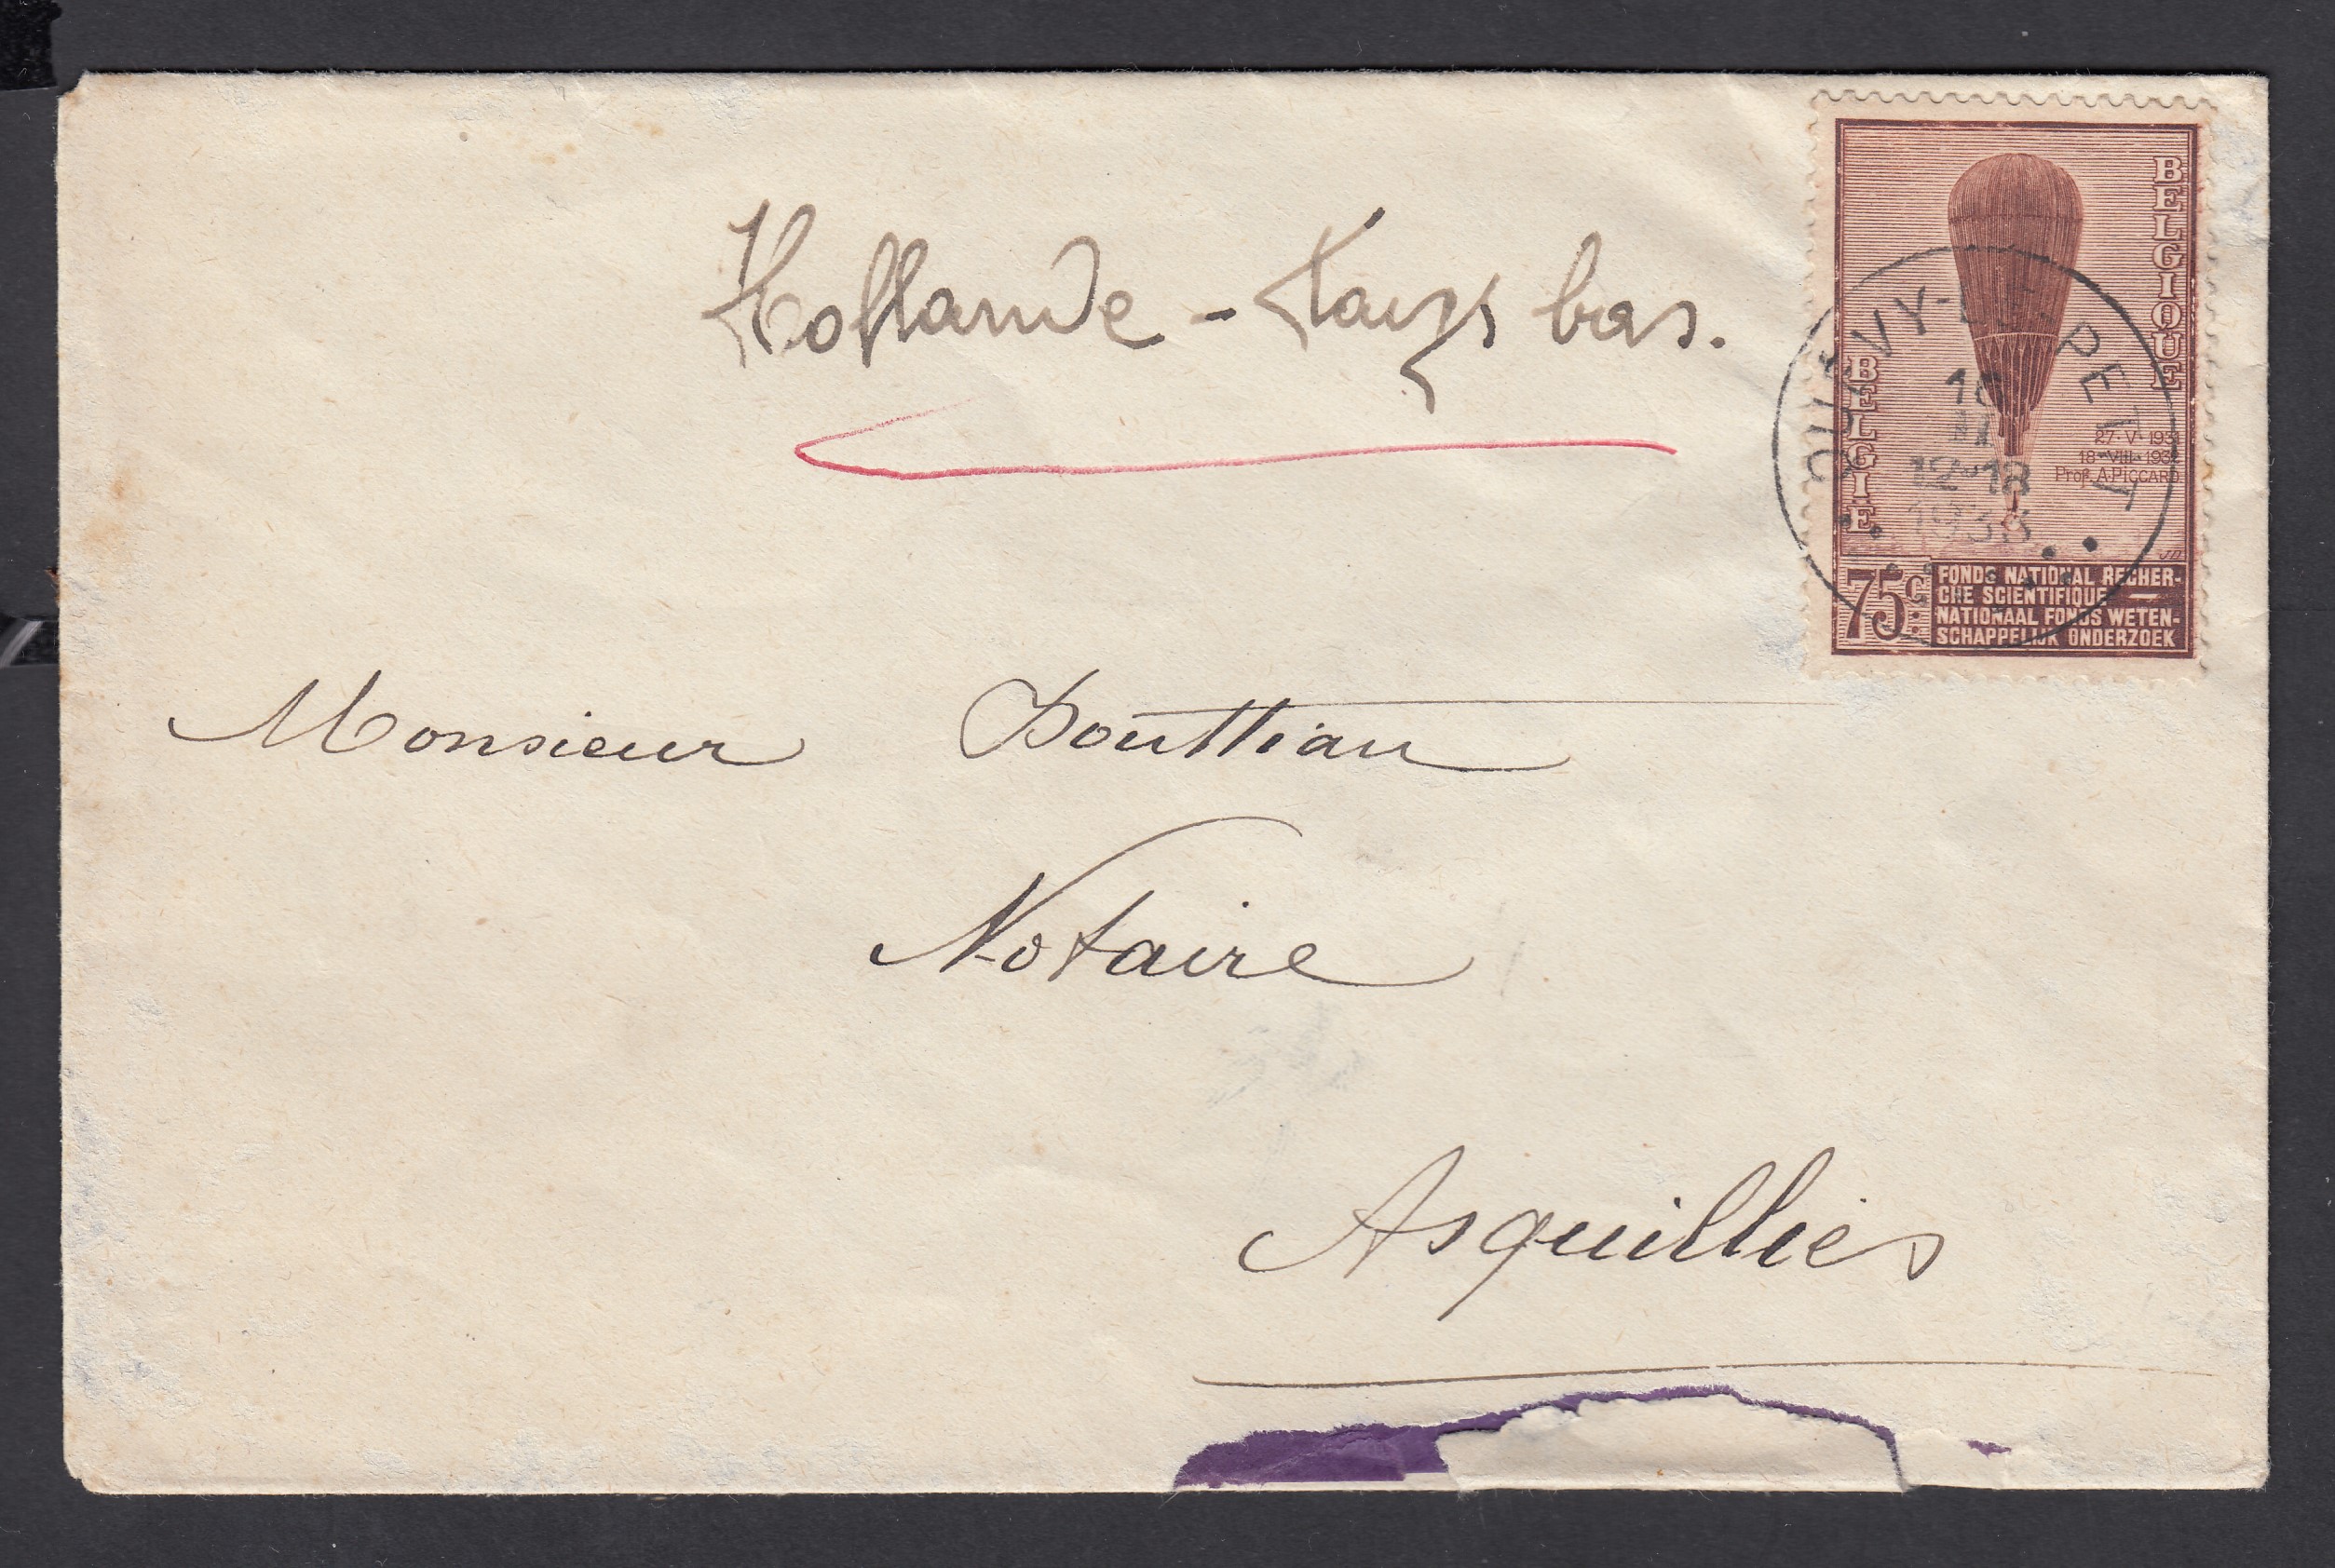 Hollande - Pays bas.
BELGIQUE
BELGIE
27·V·1931
18·VIII·1932
Prof. A. PICCARD
75c.
FONDS NATIONAL RECHER-
CHE SCIENTIFIQUE —
NATIONAAL FONDS WETEN-
SCHAPPELIJK ONDERZOEK
QUÉVY-LE-PETIT
II
12-18
1933
Monsieur
Notaire
Asquillies